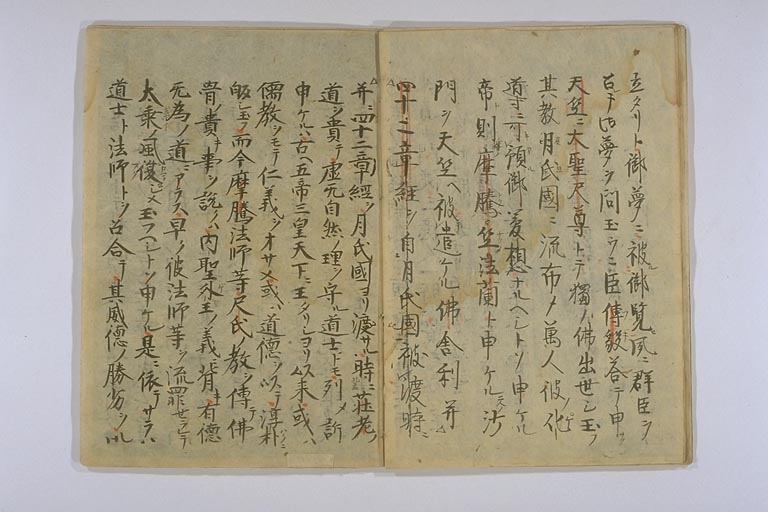 立タリト御夢ニ被御覧夙ニ群臣ヲ
召テ此夢ヲ問玉ウニ臣傅毅答テ申ク
天竺ニ大聖尺尊トテ獨ノ佛出世シ玉フ
其教月氏國ニ流布メ萬人彼化
導ニ預御夢想ナルヘシトソ申ケル
帝則摩騰竺法蘭ト申ケル沙
門ヲ天竺ヘ被遣ケル佛舎利并
四十二章經ヲ自月氏國被渡時ニ
并四十二章經ヲ月氏國ヨリ渡サル時ニ荘老ノ
道ヲ貴テ虚无自然ノ理ヲ守ル道士トモ列メ訴
申ケルハ古ヘ五帝三皇天下ニ王タリシヨリ以來或ハ
儒教ヲモテ仁義ヲオサメ或ハ道德ヲ以テ淳朴ニ
皈玉フ而今摩騰法師等尺氏ノ教ヲ傳佛
骨ノ貴キ事ヲ説ク内聖外王ノ義ニ背キ有德
无為ノ道ニアラス早ク彼法師等ヲ流罪セラレテ
太素ノ風ニ復シメ玉フヘシトソ申ケル是ニ依テサラハ
道士ト法師トヲ召合テ其威德ノ勝劣ヲ